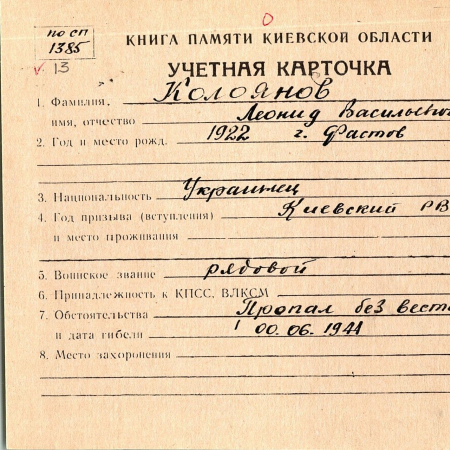 О
по сп
1385
КНИГА ПАМЯТИ КИЕВСКОЙ ОБЛАСТИ
v. 13
УЧЕТНАЯ КАРТОЧКА
1. Фамилия, Колоянов
имя, отчество Леонид Василь
2. Год и место рожд. 1922 г. Фастов
3. Национальность Украинец
4. Год призыва (вступления) Киевский РВ
и место проживания
5. Воинское звание рядовой
6. Принадлежность к КПСС, ВЛКСМ
7. Обстоятельства Пропал без вест
и дата гибели 00.06.1941
8. Место захоронения